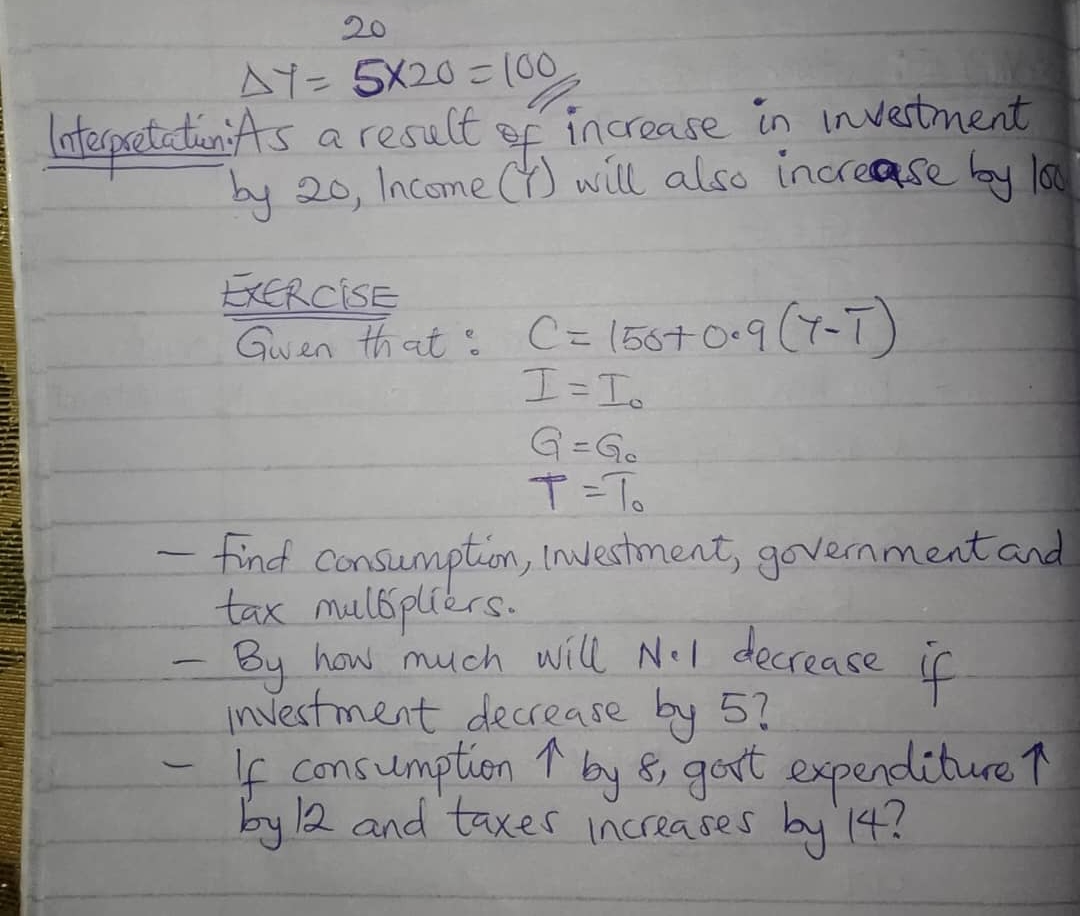 20
ΔY = 5×20 = 100
Interpretation: As a result of increase in investment
by 20, Income (Y) will also increase by 100
EXERCISE
Given that : C = 150 + 0.9 (Y-T)
I = I₀
G = G₀
T = T₀
- find consumption, investment, government and
tax multipliers.
- By how much will N.I decrease if
investment decrease by 5?
- If consumption ↑ by 8, govt expenditure ↑
by 12 and taxes increases by 14?